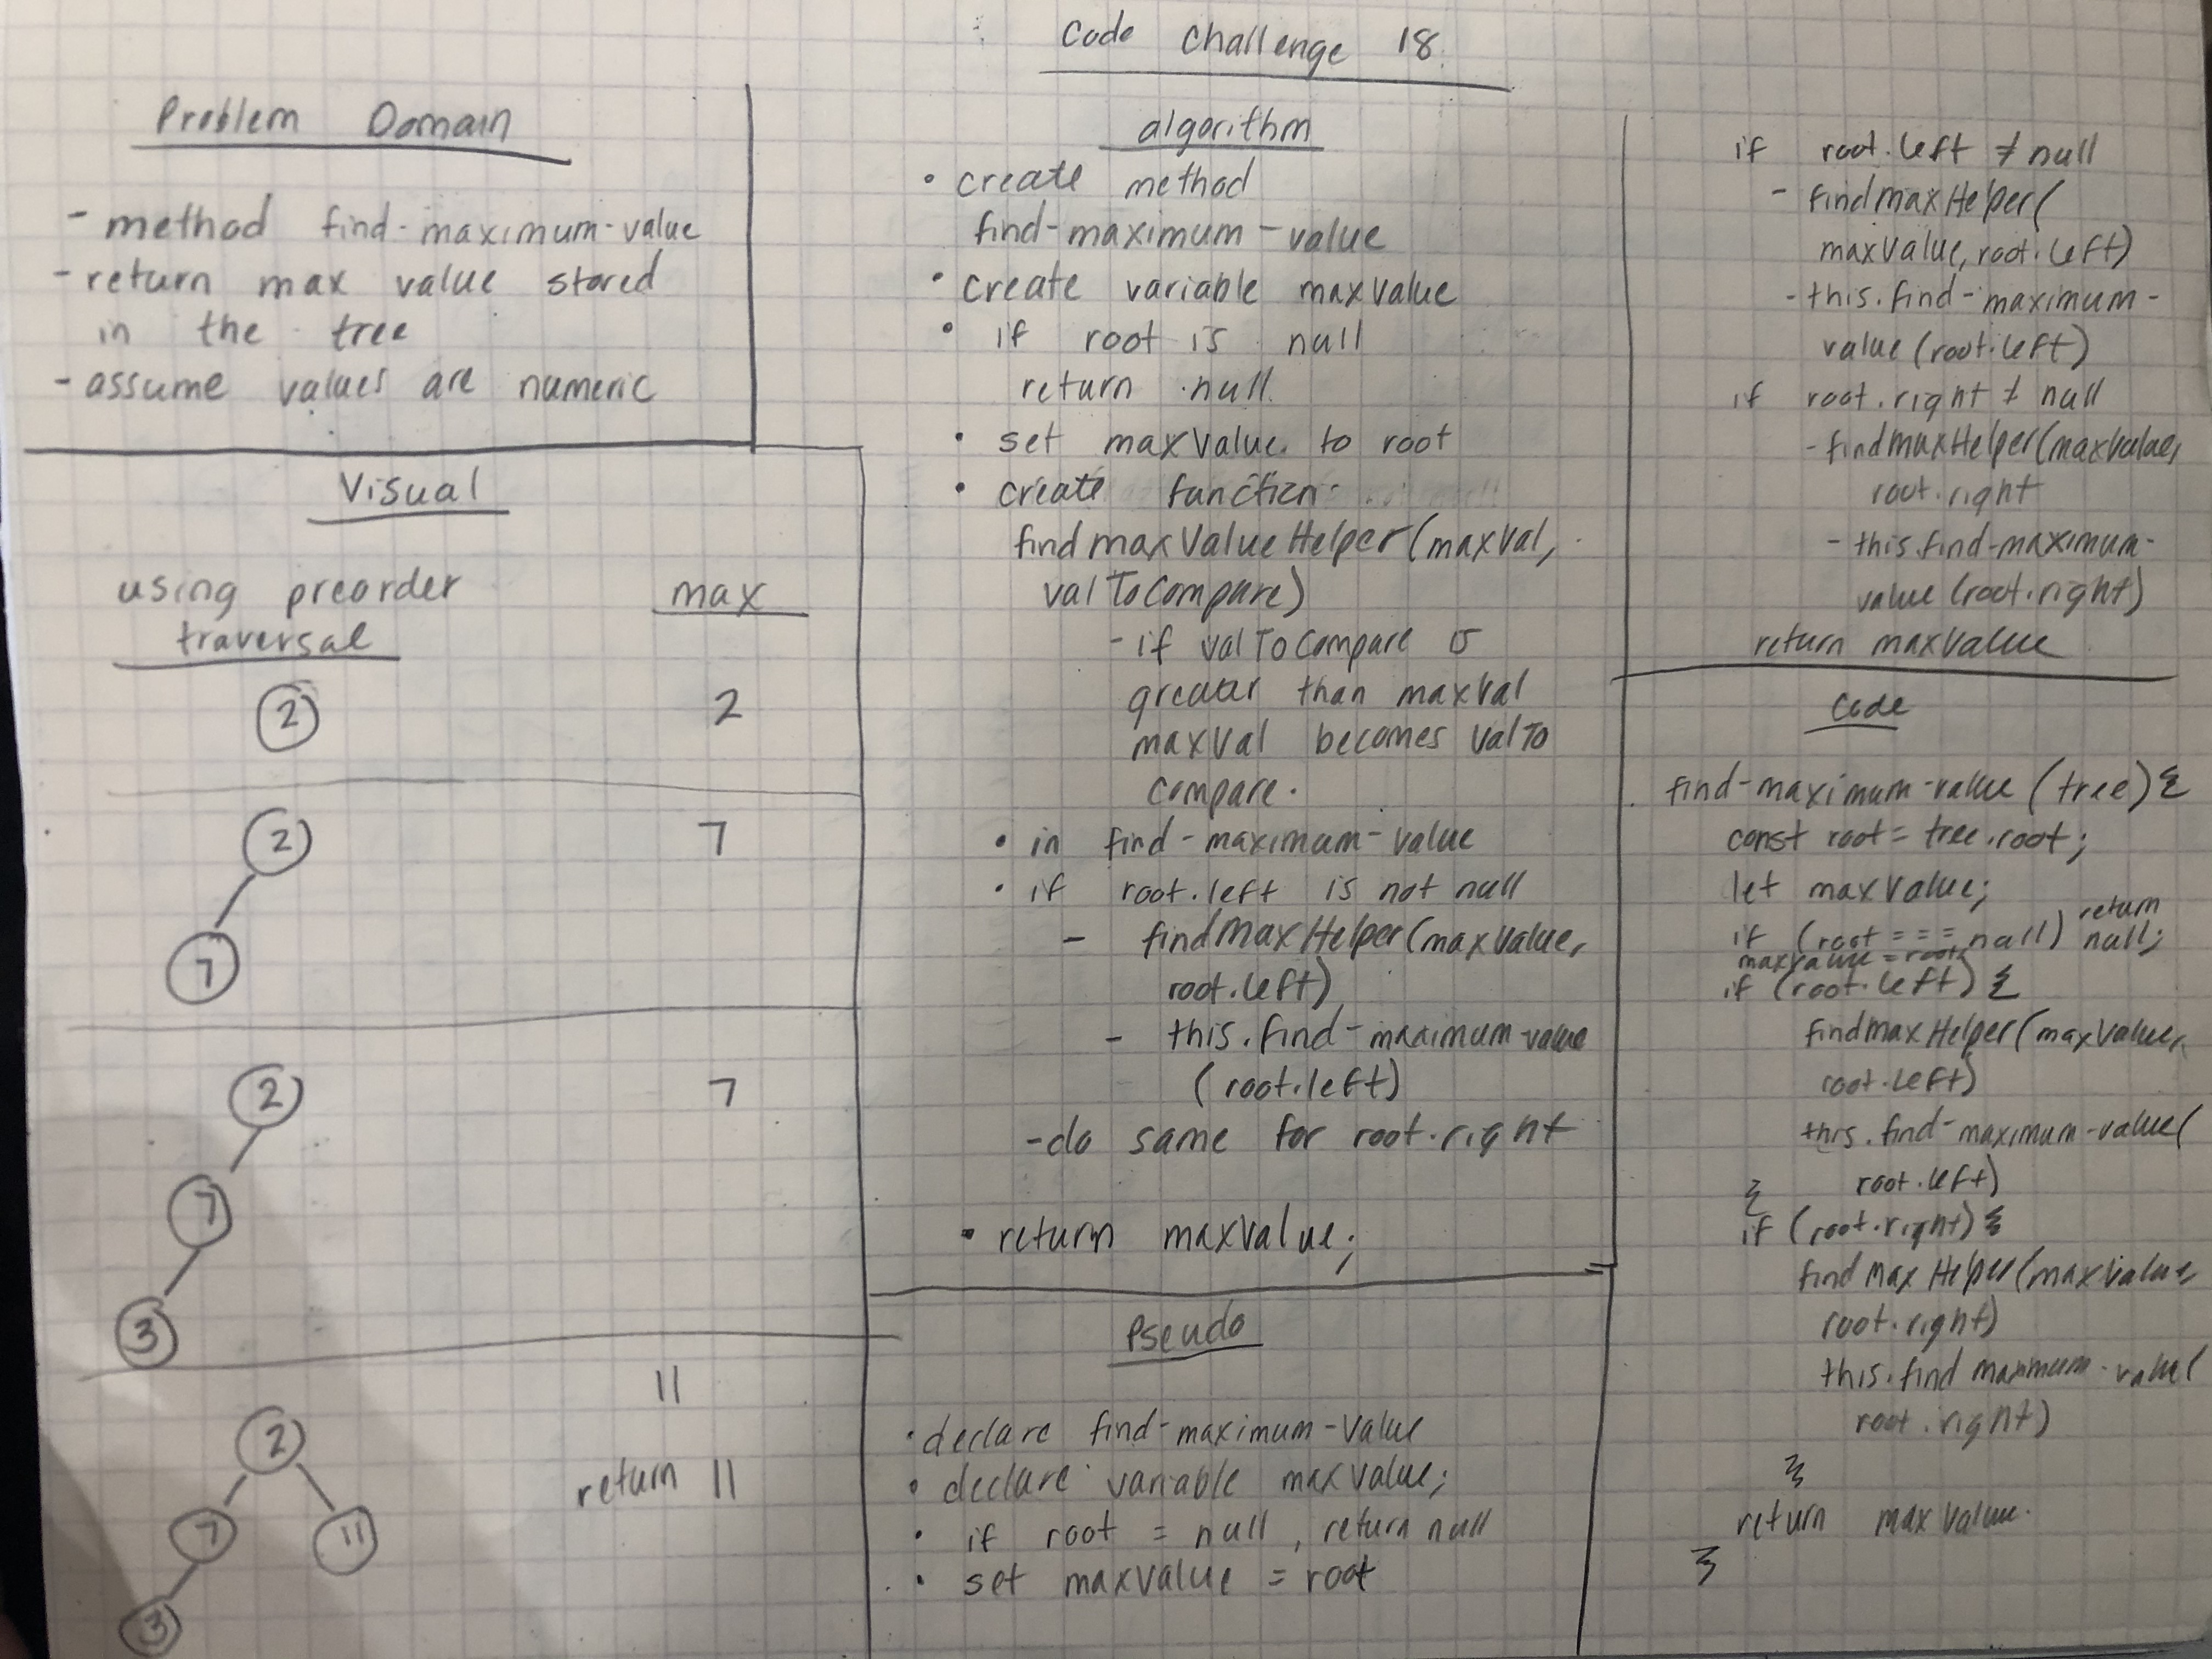 Code Challenge 18
Problem Domain
- method find-maximum-value
- return max value stored
in the tree
- assume values are numeric
Visual
using preorder
traversal
max
2
2
2
7
7
2
7
7
3
11
2
return 11
7
11
3
algorithm
• create method
find-maximum-value
• create variable maxValue
• if root is null
return null
• set maxValue to root
• create function
findmaxValueHelper(maxVal,
valToCompare)
- if valToCompare is
greater than maxVal
maxVal becomes valTo
compare.
• in find-maximum-value
• if root.left is not null
- findMaxHelper(maxValue,
root.left)
- this.find-maximum-value
(root.left)
- do same for root.right
• return maxValue;
Pseudo
• declare find-maximum-value
• declare variable maxvalue;
• if root = null, return null
• set maxvalue = root
if root.left ≠ null
- findmaxHelper(
maxValue, root.left)
- this.find-maximum-
value (root.left)
if root.right ≠ null
- findmaxHelper(maxValue,
root.right
- this.find-maximum-
value (root.right)
return maxValue
Code
find-maximum-value (tree) {
const root = tree.root;
let maxValue;
return
if (root === null) null;
maxvalue = root;
if (root.left) {
findmaxHelper(maxValue,
root.left)
this.find-maximum-value(
root.left)
}
if (root.right) {
findMaxHelper(maxValue,
root.right)
this.find maximum-value(
root.right)
}
return maxValue.
}